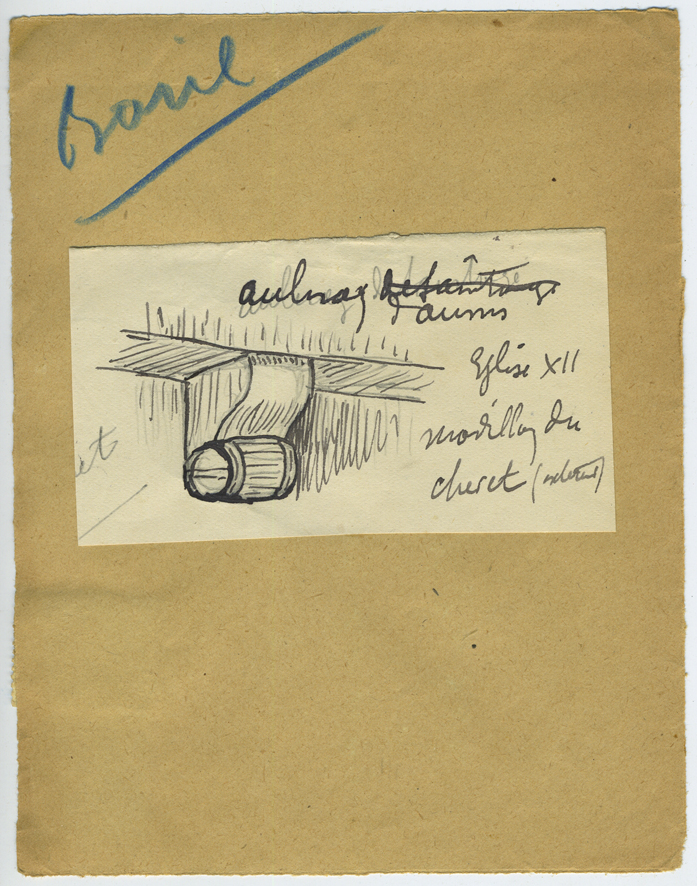 Baril
aulnay de Saintonge
d'aunis
Eglise XII
modillon du
chevet (extérieur)
et